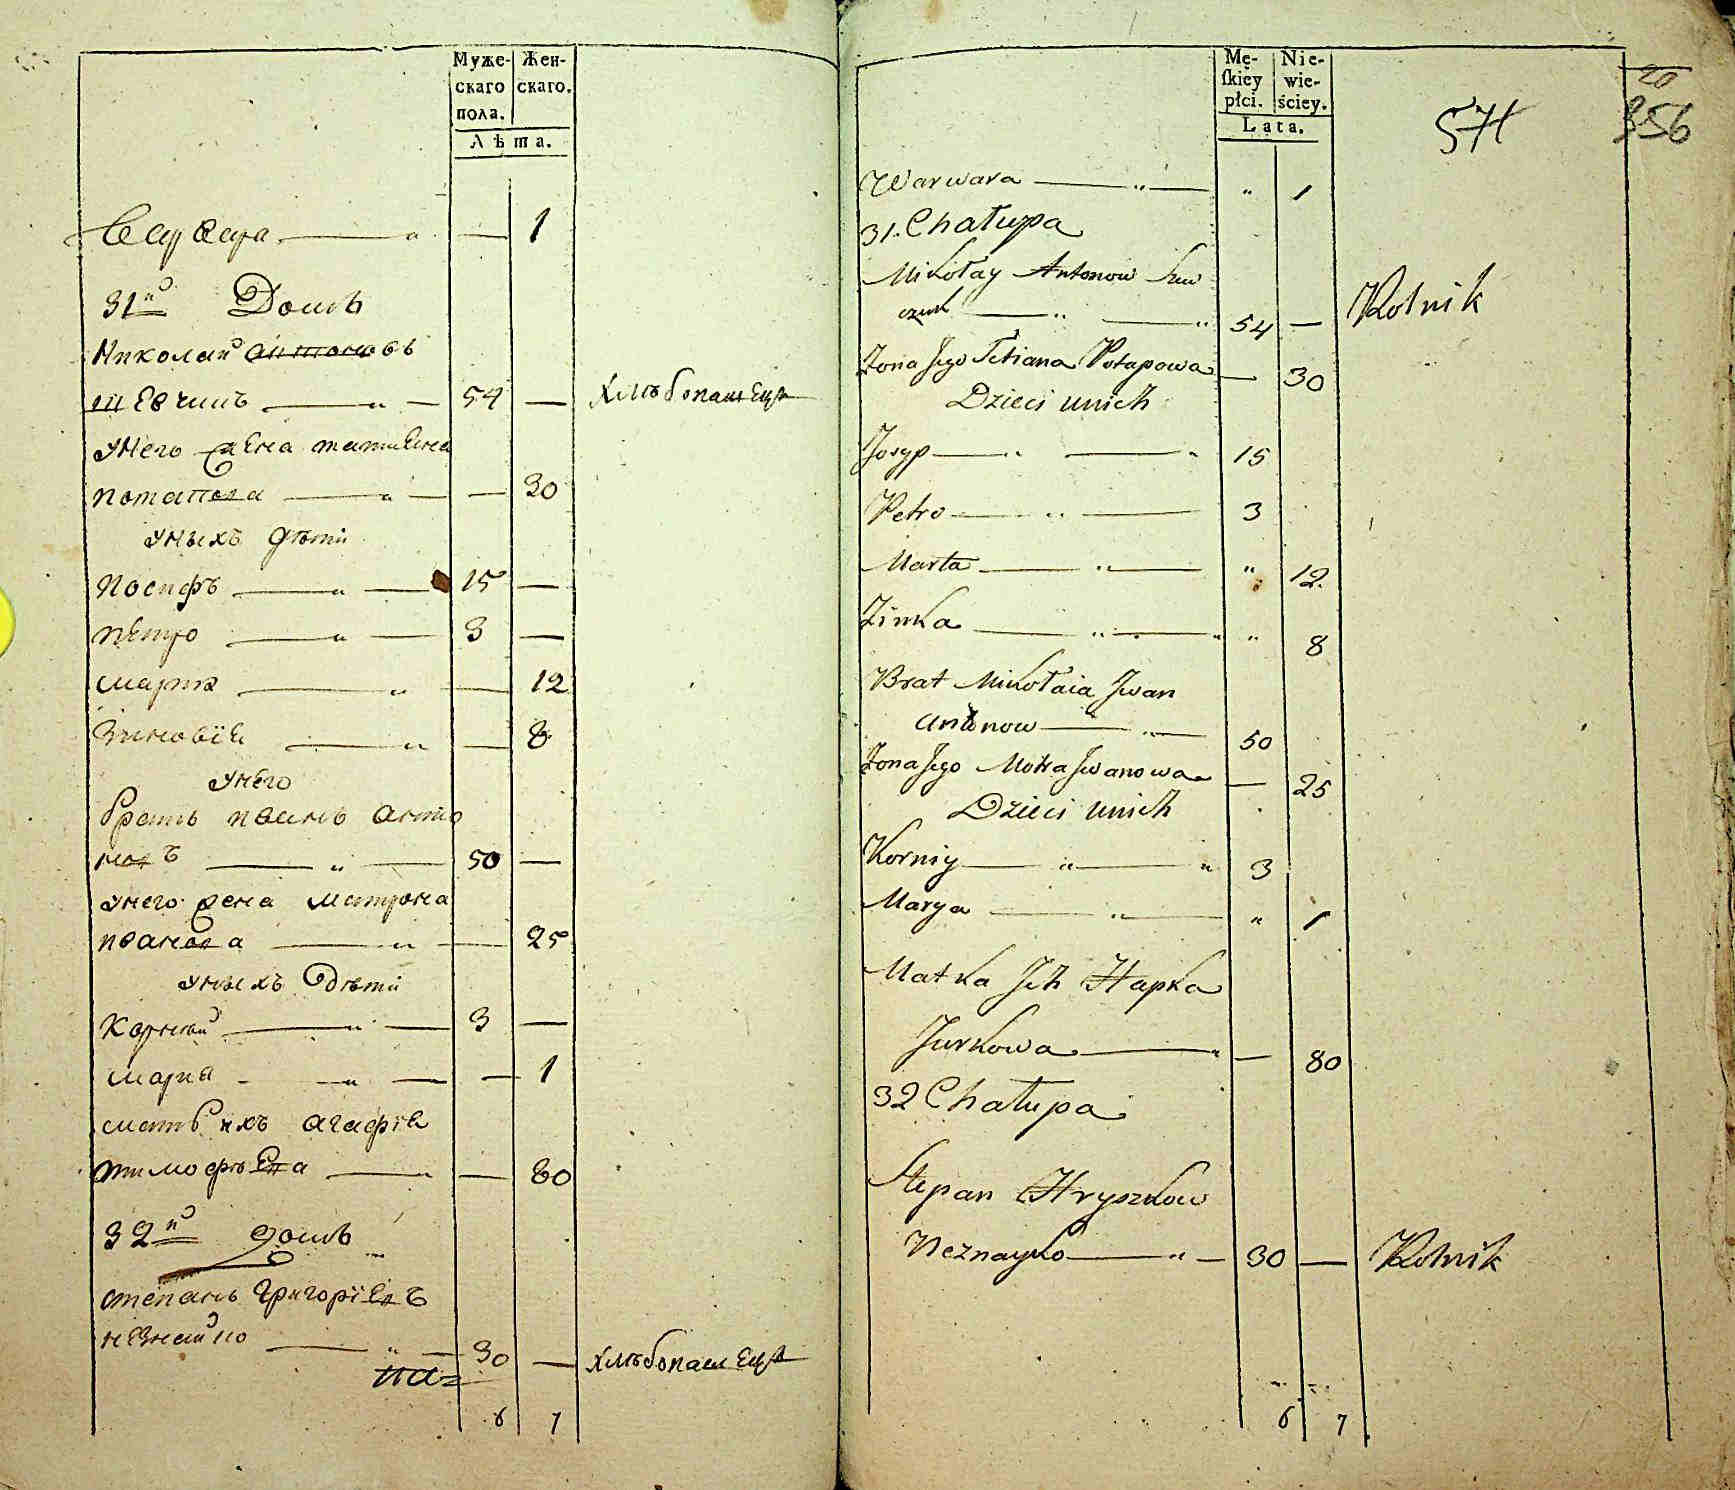 Муже-
скаго
пола.
Жен-
скаго.
Лѣта.
Варвара — " — — 1
31й Домъ
Николай Антоновъ
Шевчикъ — " — 54 — хлѣбопашецъ
унего жена татиена
потапова — " — — 30
уныхъ дѣти
Иосифъ — " — 15 —
пѣтро — " — 3 —
марта — " — 12
Зиновїя — " — 8
унего
братъ иванъ анто
новъ — " — 50 —
унего жена матрона
иванова — " — 25
уныхъ Дѣти
Корнѣй — " — 3 —
мария - " — — 1
мать ихъ агафїя
тимофѣева — " — 80
32й домъ
степанъ григорїевъ
незнайко — " — 30 — хлѣбопашецъ
6 7
Mę-
ſkiéy
płci.
Nie-
wie-
ściey.
Lata.
20
574
356
Warwara — " — " 1
31. Chałupa
Mikołay Antonow Szew
czuk — " — " 54 — Rolnik
Żona Jego Tetiana Potapowa — 30
Dzieci unich
Josyp — " — " 15
Petro — " — 3
Marta — " — " 12.
Zinka — " — " " 8
Brat Mikołaia Jwan
antonow — " — 50
Żona Jego Motra Jwanowa — 25
Dzieci unich
Korniy — " — " 3
Marya — " — " 1
Matka Jch Hapka
Jurkowa — " — 80
32 Chałupa
Stepan Hryszkow
Neznayko — " — 30 — Rolnik
6 7